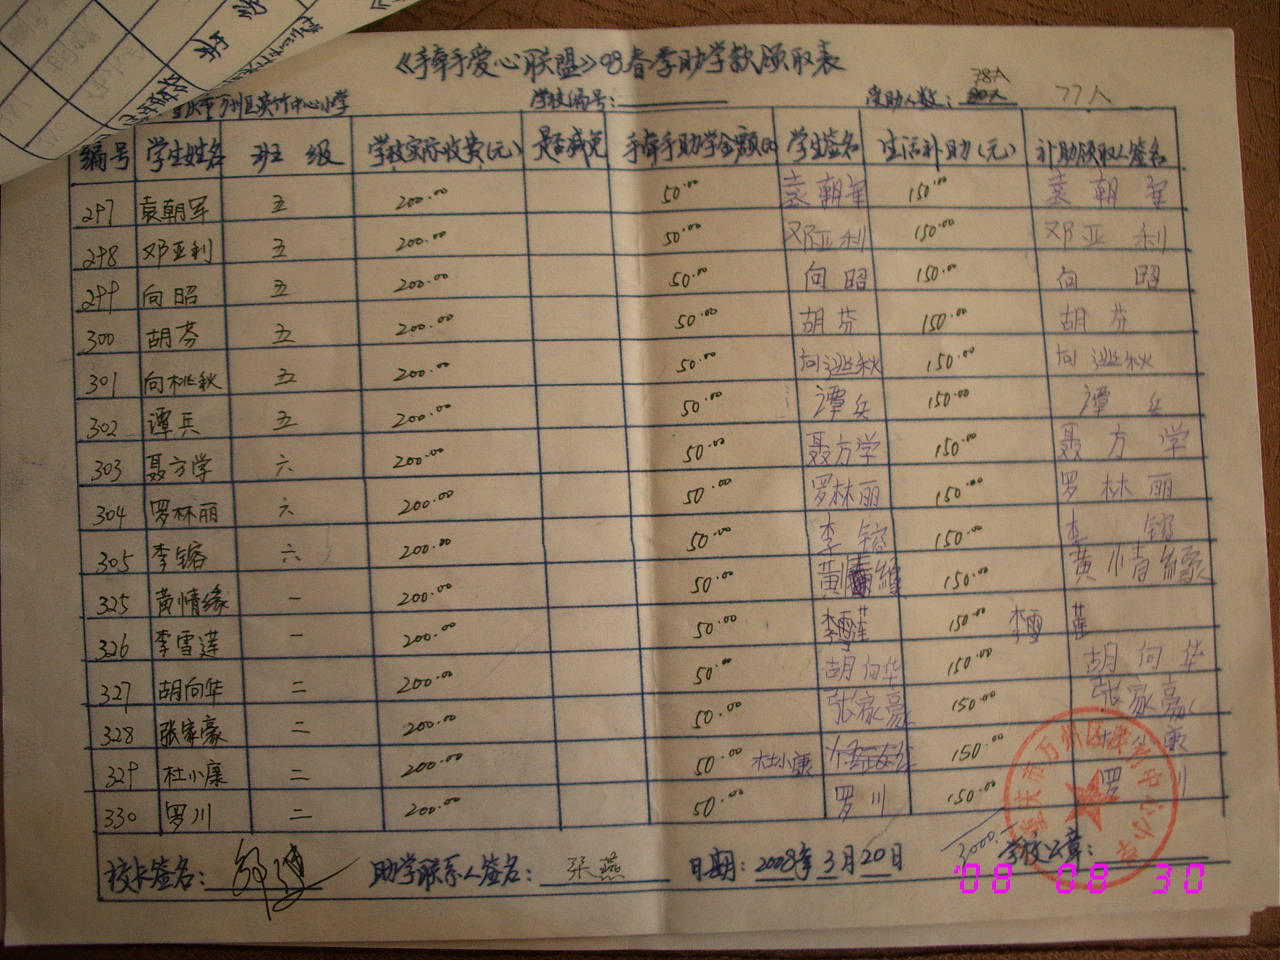 《手牵手爱心联盟》08春季助学款领取表
重庆市万州区 中心小学 学校编号: 受助人数: 78人 77人
编号 学生姓名 班级 学校实际收费(元) 是否减免 手牵手助学金额(元) 学生签名 生活补助(元) 补助领取人签名
297 袁朝军 五 200.00 50.00 袁朝军 150.00 袁朝军
298 邓亚利 五 200.00 50.00 邓亚利 150.00 邓亚利
299 向昭 五 200.00 50.00 向昭 150.00 向昭
300 胡芬 五 200.00 50.00 胡芬 150.00 胡芬
301 向桃秋 五 200.00 50.00 向逃秋 150.00 向逃秋
302 谭兵 五 200.00 50.00 谭兵 150.00 谭兵
303 聂方学 六 200.00 50.00 聂方学 150.00 聂方学
304 罗林丽 六 200.00 50.00 罗林丽 150.00 罗林丽
305 李镕 六 200.00 50.00 李镕 150.00 李镕
325 黄情缘 一 200.00 50.00 黄情缘 150.00 黄情缘
326 李雪莲 一 200.00 50.00 李雪莲 150.00 李雪莲
327 胡向华 二 200.00 50.00 胡向华 150.00 胡向华
328 张家豪 二 200.00 50.00 张家豪 150.00 张家豪
329 杜小康 二 200.00 50.00 杜小康 150.00 康
330 罗川 二 200.00 50.00 罗川 150.00 罗川
3000.
校长签名: 助学联系人签名: 张燕 日期: 2008年3月20日 学校公章:
重庆市万州区 中心小学
'08 08 30